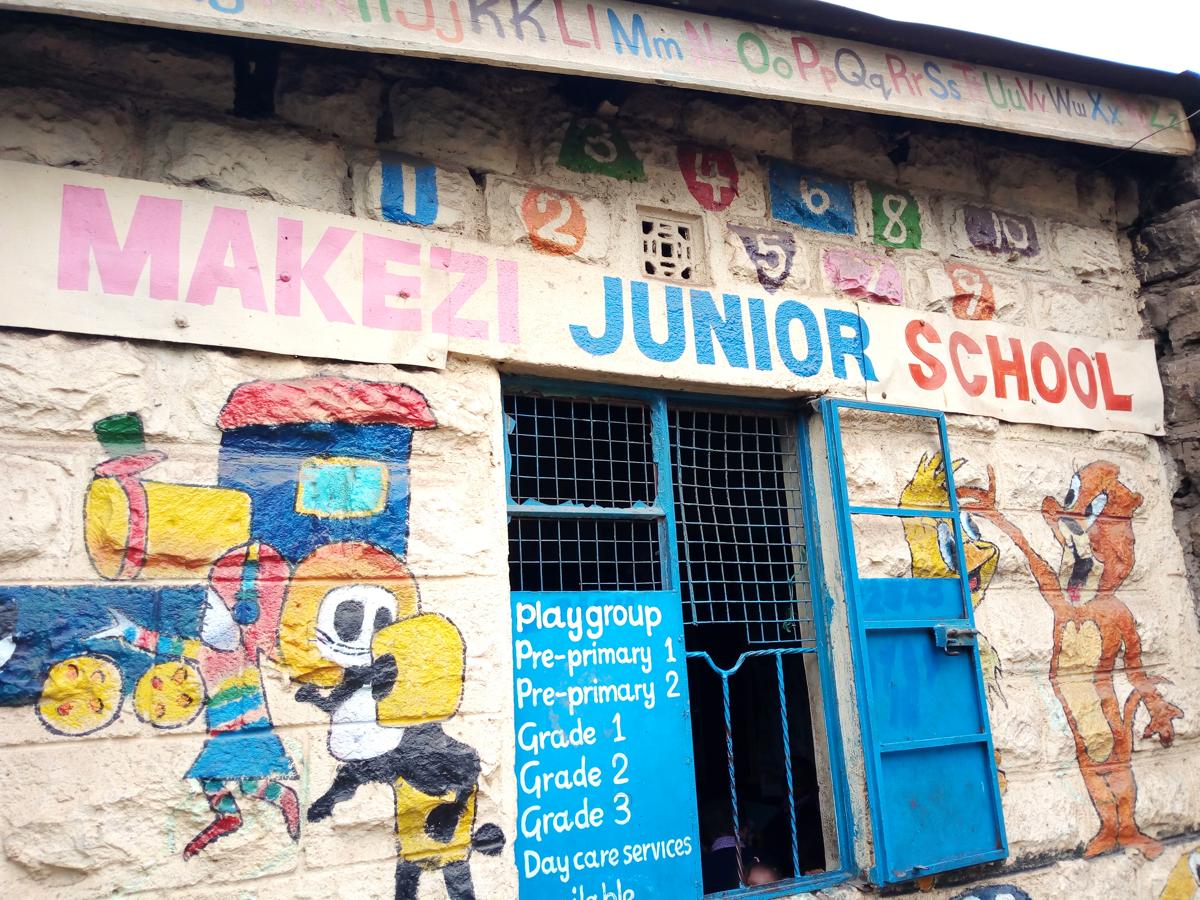 Jj Kk Ll Mm Nn Oo Pp Qq Rr Ss Tt Uu Vv Ww Xx Zz
1 2 3 4 5 6 7 8 9 10
MAKEZI JUNIOR SCHOOL
Playgroup
Pre-primary 1
Pre-primary 2
Grade 1
Grade 2
Grade 3
Day care services